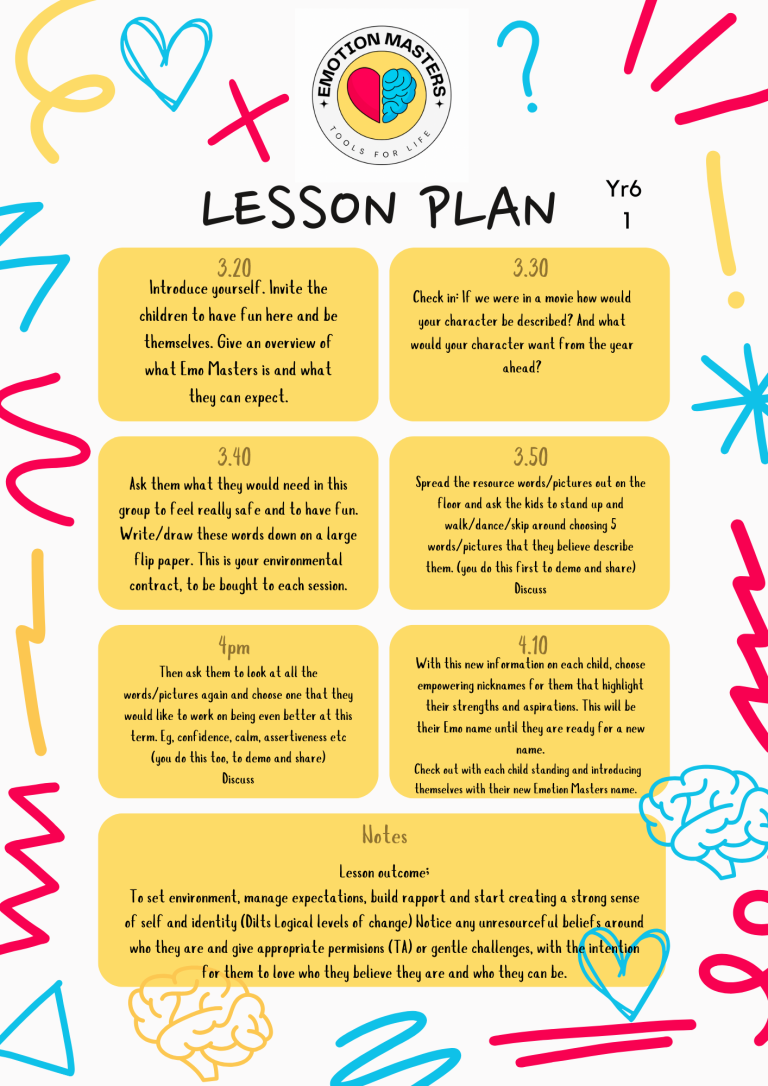 EMOTION MASTERS
TOOLS FOR LIFE
LESSON PLAN
Yr6
1
3.20
Introduce yourself. Invite the
children to have fun here and be
themselves. Give an overview of
what Emo Masters is and what
they can expect.
3.30
Check in: If we were in a movie how would
your character be described? And what
would your character want from the year
ahead?
3.40
Ask them what they would need in this
group to feel really safe and to have fun.
Write/draw these words down on a large
flip paper. This is your environmental
contract, to be bought to each session.
3.50
Spread the resource words/pictures out on the
floor and ask the kids to stand up and
walk/dance/skip around choosing 5
words/pictures that they believe describe
them. (you do this first to demo and share)
Discuss
4pm
Then ask them to look at all the
words/pictures again and choose one that they
would like to work on being even better at this
term. Eg, confidence, calm, assertiveness etc
(you do this too, to demo and share)
Discuss
4.10
With this new information on each child, choose
empowering nicknames for them that highlight
their strengths and aspirations. This will be
their Emo name until they are ready for a new
name.
Check out with each child standing and introducing
themselves with their new Emotion Masters name.
Notes
Lesson outcome;
To set environment, manage expectations, build rapport and start creating a strong sense
of self and identity (Dilts Logical levels of change) Notice any unresourceful beliefs around
who they are and give appropriate permisions (TA) or gentle challenges, with the intention
for them to love who they believe they are and who they can be.